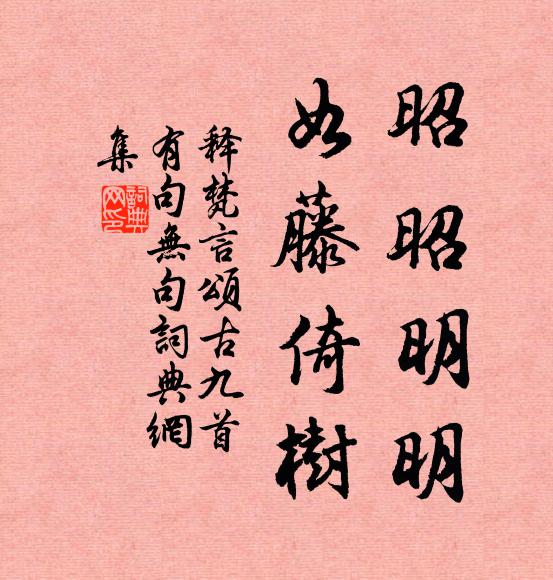 昭昭明明
如藤倚樹
释梵言頌古九首
有句無句詞典網
集
詞典網印